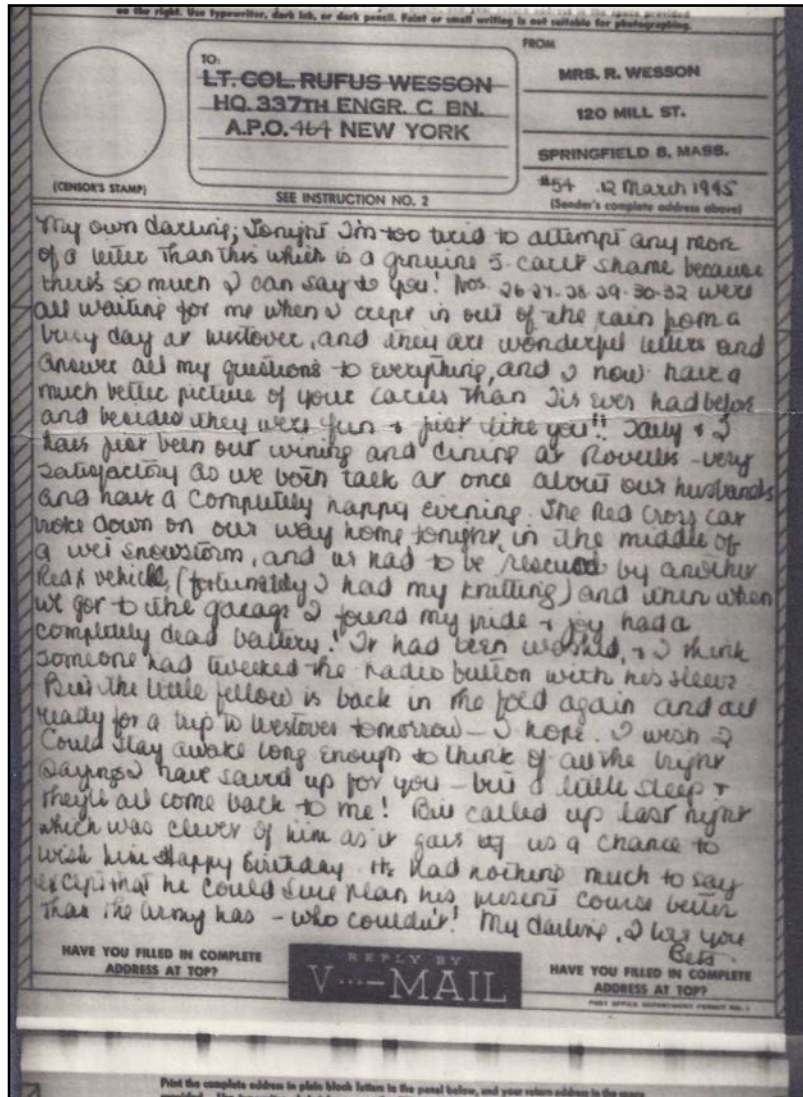 on the right. Use typewriter, dark ink, or dark pencil. Faint or small writing is not suitable for photographing.
TO:
LT. COL. RUFUS WESSON
HQ. 337TH ENGR. C BN.
A.P.O. 464 NEW YORK
FROM
MRS. R. WESSON
120 MILL ST.
SPRINGFIELD 8, MASS.
#54 12 March 1945
(CENSOR'S STAMP)
SEE INSTRUCTION NO. 2
(Sender's complete address above)
My own darling; Tonight I'm too tired to attempt any more
of a letter than this which is a genuine 5-carat shame because
there's so much I can say to you! Nos. 26-27-28-29-30-32 were
all waiting for me when I crept in out of the rain from a
busy day at Westover, and they are wonderful letters and
answer all my questions to everything, and I now have a
much better picture of your than I've ever had before
and besides they were fun & just like you!! & I
have just been out wining and dining at Rovelli's - very
satisfactory as we both talk at once about our husbands
and have a completely happy evening. The Red Cross car
broke down on our way home tonight, in the middle of
a wet snowstorm, and we had to be rescued by another
Red X vehicle (fortunately I had my knitting) and then when
we got to the garage I found my pride & joy had a
completely dead battery! It had been washed, & I think
someone had tweeked the radio button with his sleeve
But the little fellow is back in the fold again and all
ready for a trip to Westover tomorrow - I hope. I wish I
could stay awake long enough to think of all the bright
sayings I have saved up for you - but a little sleep &
they'll all come back to me! Bill called up last night
which was clever of him as it gave us a chance to
wish him Happy Birthday. He had nothing much to say
except that he could sure plan his present course better
than the Army has - who couldn't! My darling, I love you
Bets.
HAVE YOU FILLED IN COMPLETE
ADDRESS AT TOP?
REPLY BY
V···—MAIL
HAVE YOU FILLED IN COMPLETE
ADDRESS AT TOP?
POST OFFICE DEPARTMENT PERMIT NO. 1
Print the complete address in plain block letters in the panel below, and your return address in the space